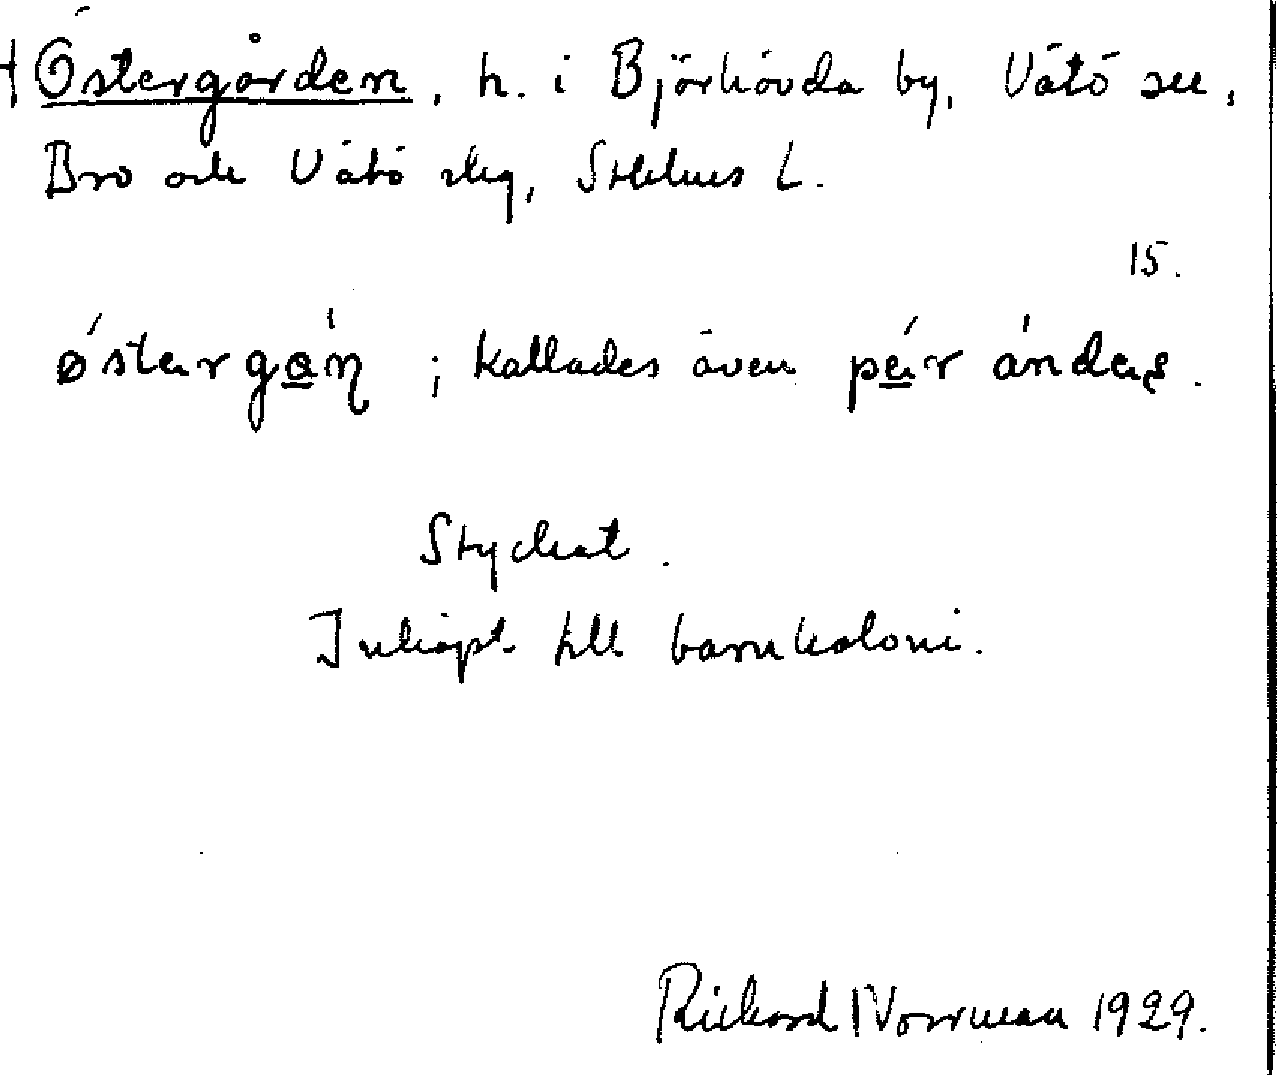 † Östergården, h. i Björkövda by, Vätö sn,
Bro och Vätö slg, Sthlms L.
15.
østərgɑ̱́ɳ ; kallades även pǽ̱r ándəʂ.
Styckat.
Inköpt till barnkoloni.
Rickard Norrman 1929.